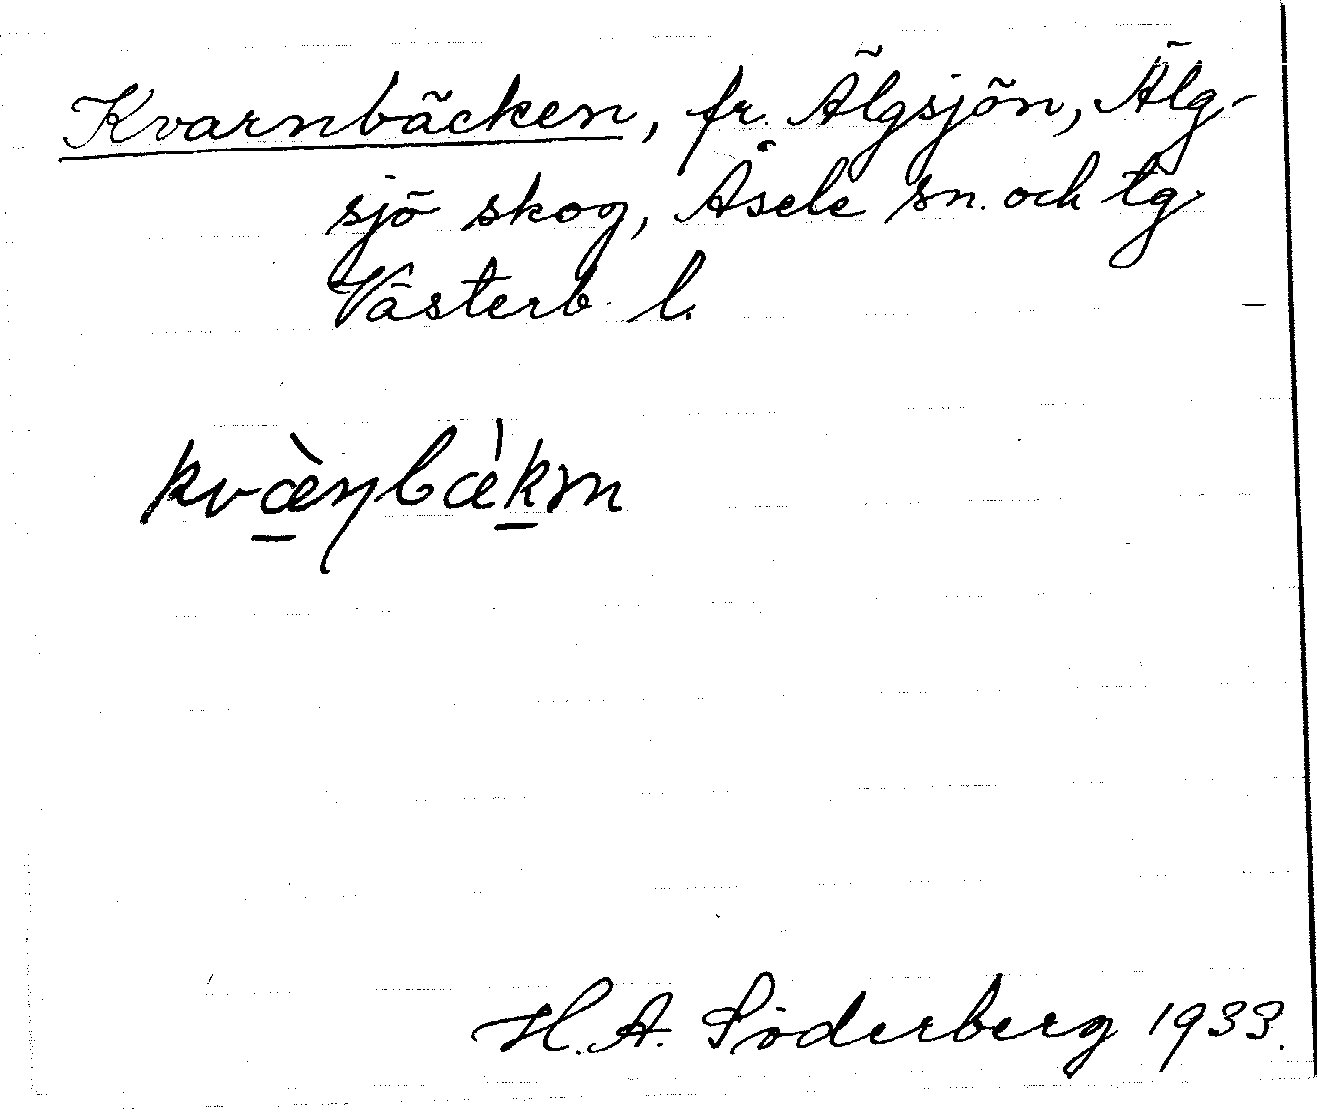 Kvarnbäcken, fr. Älgsjön, Älg-
sjö skog, Åsele sn. och tg
Västerb. l.
kvæ̀ɳbæ̀km
H. A. Söderberg 1933.